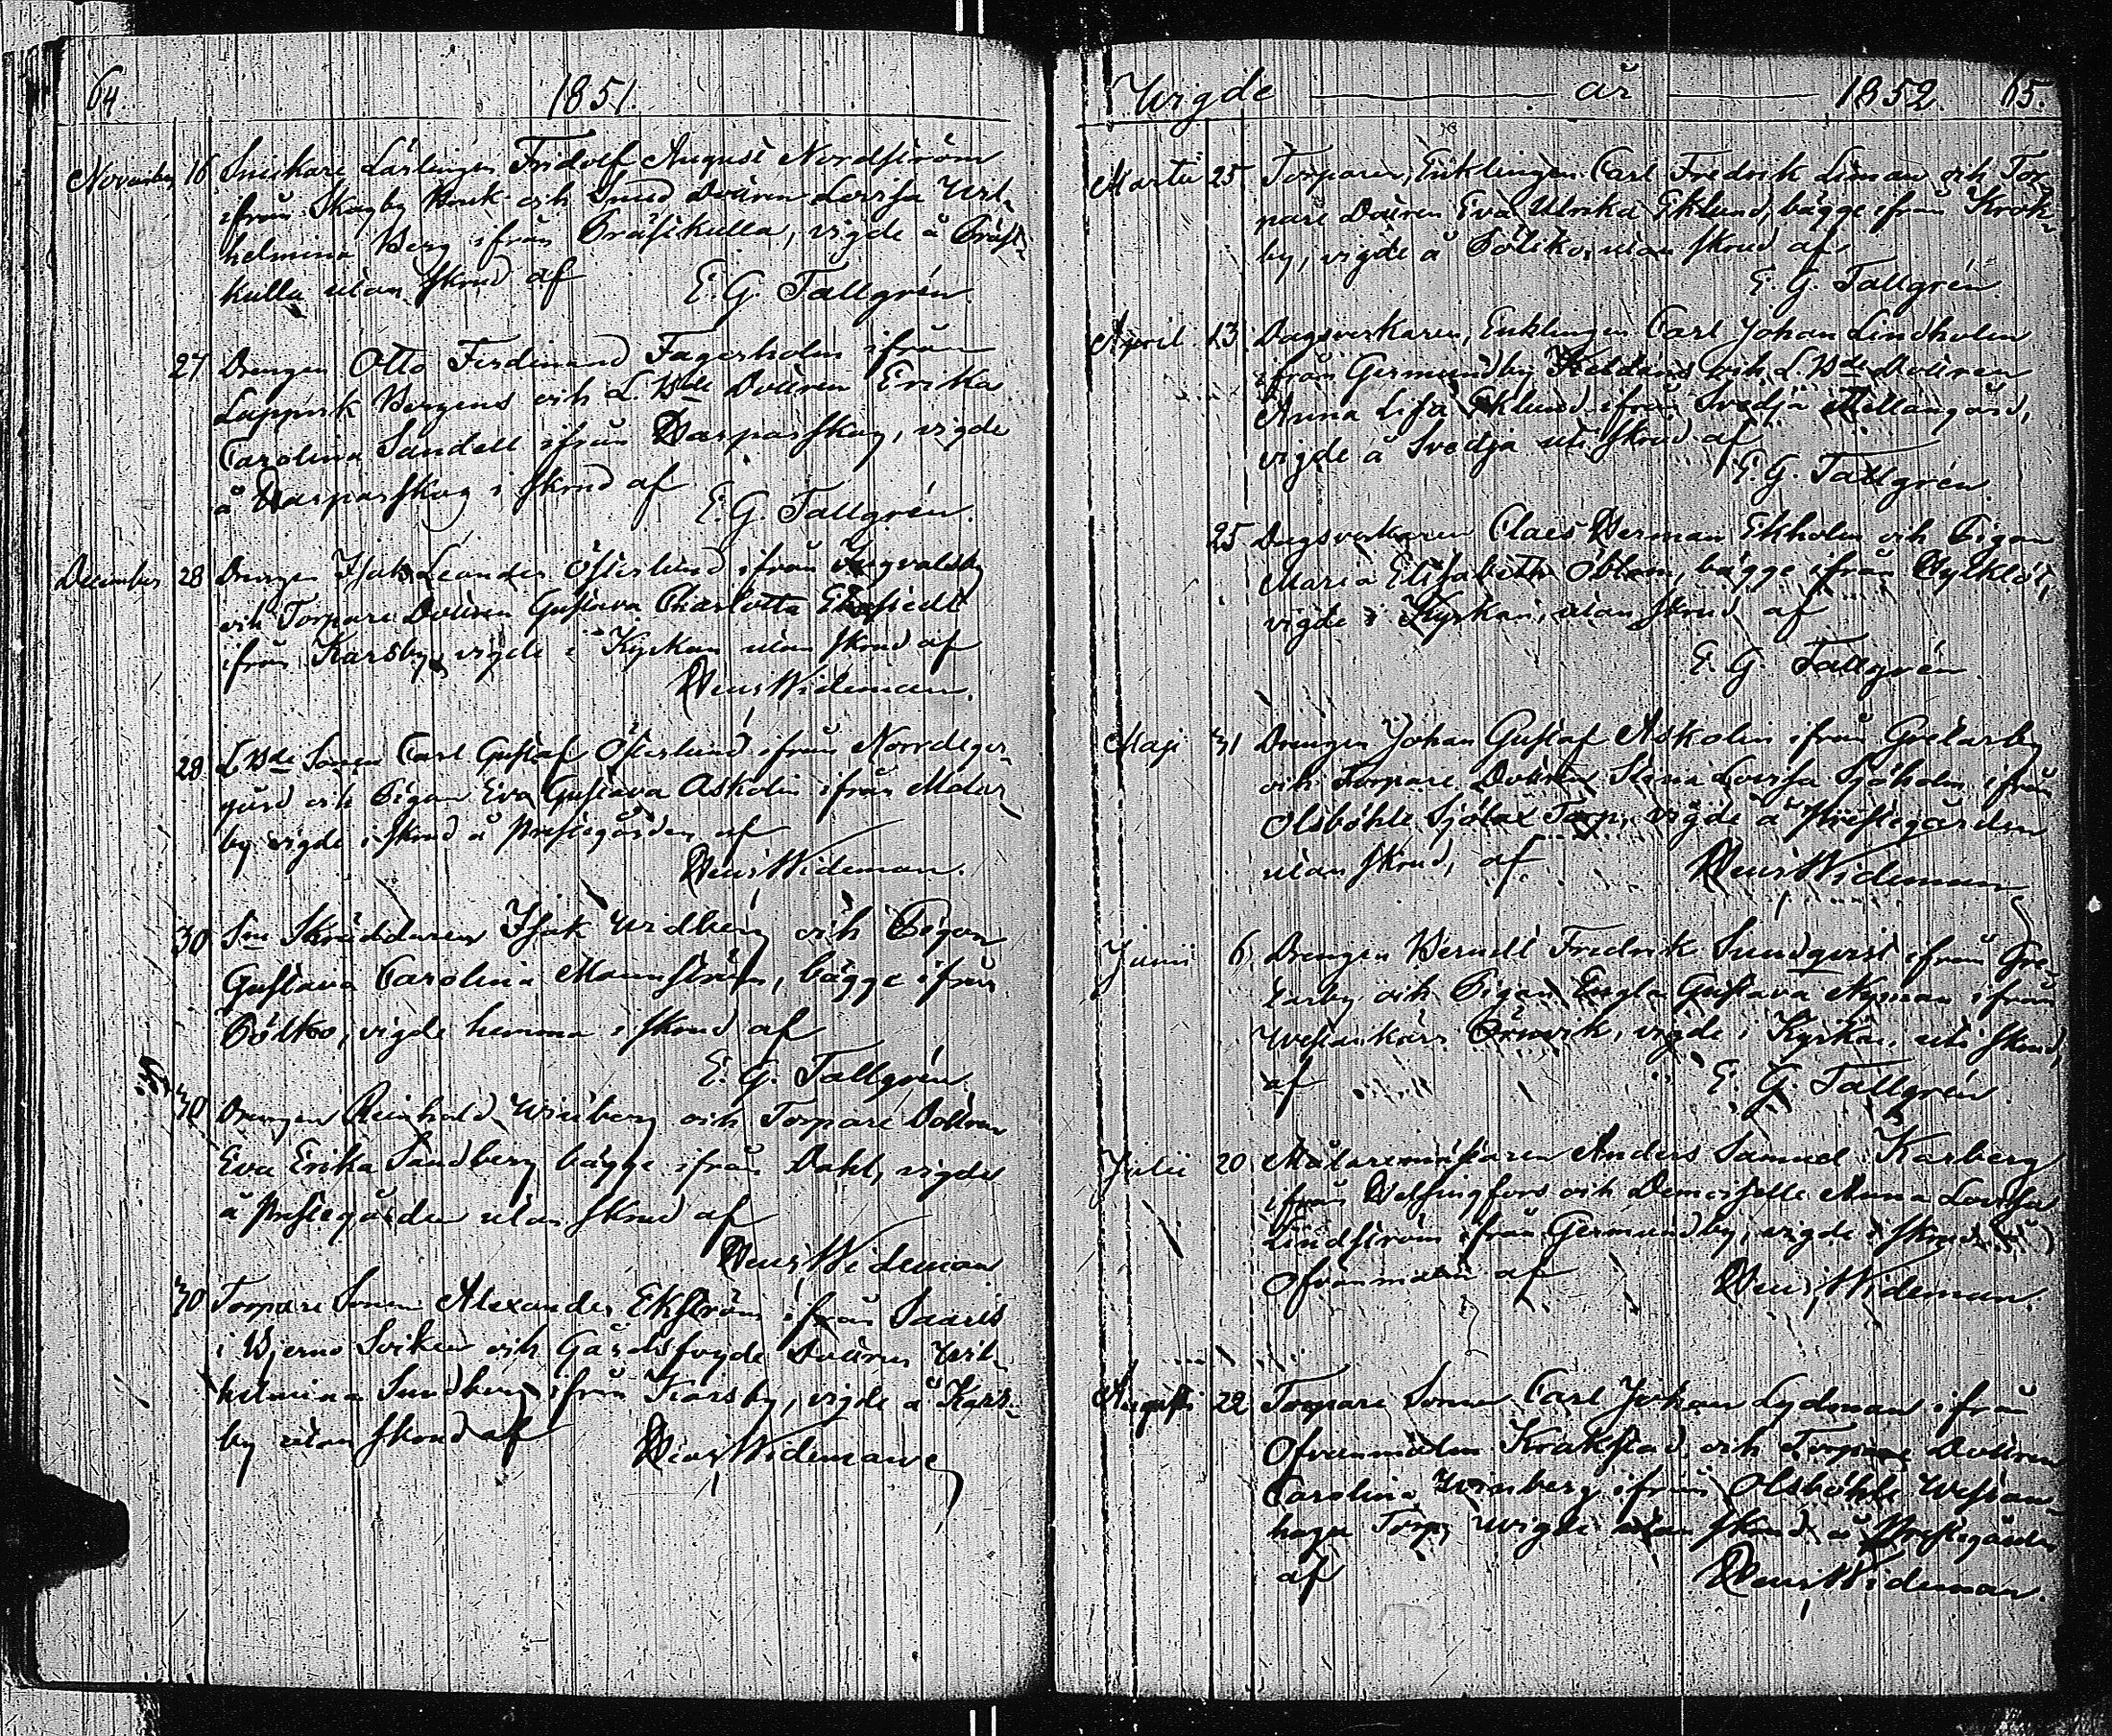 64
1851.
November 16 Snickare Lärlingen Fridolf August Nordström
ifrån Skogby Bruk och Smed Dottren Lovisa Wil-
helmina Berg ifrån Präfskulla, vigde å Präfs-
kulla utan skrud af
E. G. Tallgrén.
27 Drengen Otto Ferdinand Fagerholm ifrån
Lappvik Bergens och L. Bde Dottren Erika
Carolina Sandell ifrån Harparskog, vigde
å Harparskog i skrud af
E. G. Tallgrén.
December 28 Drengen Isak Leander Österlund ifrån
och Torpare Dottren Gustava Charlotta Ekstedt
ifrån Karsby, vigde i Kyrkan utan skrud af
Wideman.
28 L. Bde Sonen Carl Gustaf Österlund ifrån Norrdeger-
gård och Pigan Eva Gustava Askolin ifrån Malar-
by vigde i skrud å Prestegården af
Wideman.
30 Sn Skräddaren Isak Widberg och Pigan
Gustava Carolina Mannström, bägge ifrån
Bölko, vigde hemma i skrud af
E. G. Tallgrén.
30 Drengen Reinhold Winberg och Torpare Dottren
Eva Erika Sandberg bägge ifrån Dahl, vigde
å Prestegården utan skrud af
Wideman
30 Torpare Sonen Alexander Ekström ifrån Saaris
i Bjerno Socken och Gårdsfogde Dottren Wil-
helmina Sundberg ifrån Karsby, vigde å Kars-
by utan skrud af
Wideman
Wigde år 1852 65.
Martii 25 Torparen, Enklingen Carl Fredrik Liman och Tor-
pare Dottren Eva Ulrika Eklund, bägge ifrån Krok-
by, vigde å Bölsko, utan skrud af
E. G. Tallgrén.
April 13 Dagsverkaren, Enklingen Carl Johan Lindholm
ifrån Germundby och L. Bde Dottren
Anna Lisa Eklund ifrån Svedja Mellangård,
vigde å Svedja uti skrud af
E. G. Tallgrén.
25 Dagsverkaren Claes Herman Ekholm och Pigan
Maria Elisabeth Öblom, bägge ifrån
vigde i Kyrkan, utan skrud af
E. G. Tallgrén.
Maji 31 Drengen Johan Gustaf Askolin ifrån Gretarby
och Torpare Dottren Stina Lovisa Sjöholm ifrån
Olsböhle Sjölax Torp, vigde å Prestegården
utan skrud, af Wideman
Junii 6 Drengen Berndt Fredrik Sundqvist ifrån Gre-
tarby och Pigan Engla Gustava Nyman ifrån
Westankärr Örnvik, vigde i Kyrkan uti skrud,
af E. G. Tallgrén.
Julii 20 Målaremästaren Anders Samuel Karberg
ifrån Helsingfors och Demoiselle Anna Lovisa
Lindström ifrån Germundby, vigde i skrud å
Ofvanmalm af Wideman.
Augusti 22 Torpare Sonen Carl Johan Lydman ifrån
Ofvanmalm Krakstad och Torpare Dottren
Carolina Winberg ifrån Olsböhle Westan-
haga Torp, wigde utan skrud å Prestegården
af Wideman.